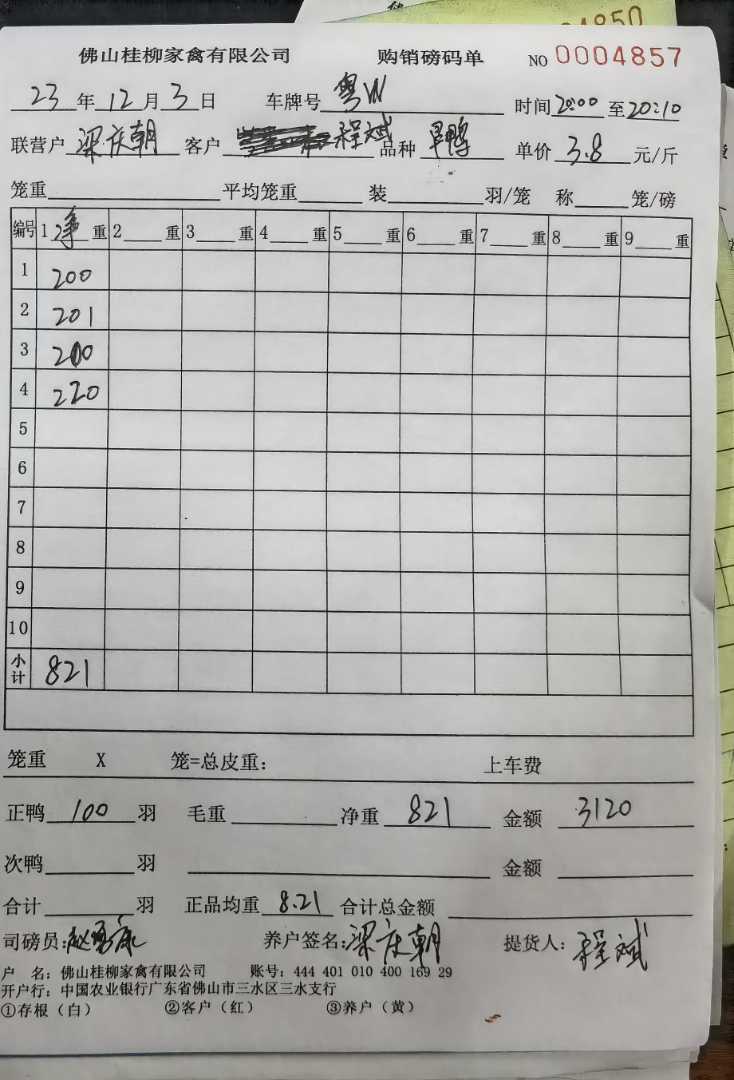 4850
佛山桂柳家禽有限公司 购销磅码单 NO 0004857
23年12月3日 车牌号粤W 时间20:00至20:10
联营户梁庆朝 客户程斌 品种旱鸭 单价3.8元/斤
笼重 平均笼重 装 羽/笼 称 笼/磅
编号 1净重 2重 3重 4重 5重 6重 7重 8重 9重
1 200
2 201
3 200
4 220
5
6
7
8
9
10
小计 821
笼重 X 笼=总皮重： 上车费
正鸭100羽 毛重 净重821 金额3120
次鸭 羽 金额
合计 羽 正品均重8.21 合计总金额
司磅员: 养户签名:梁庆朝 提货人：程斌
户 名：佛山桂柳家禽有限公司 账号：444 401 010 400 169 29
开户行：中国农业银行广东省佛山市三水区三水支行
①存根（白） ②客户（红） ③养户（黄）